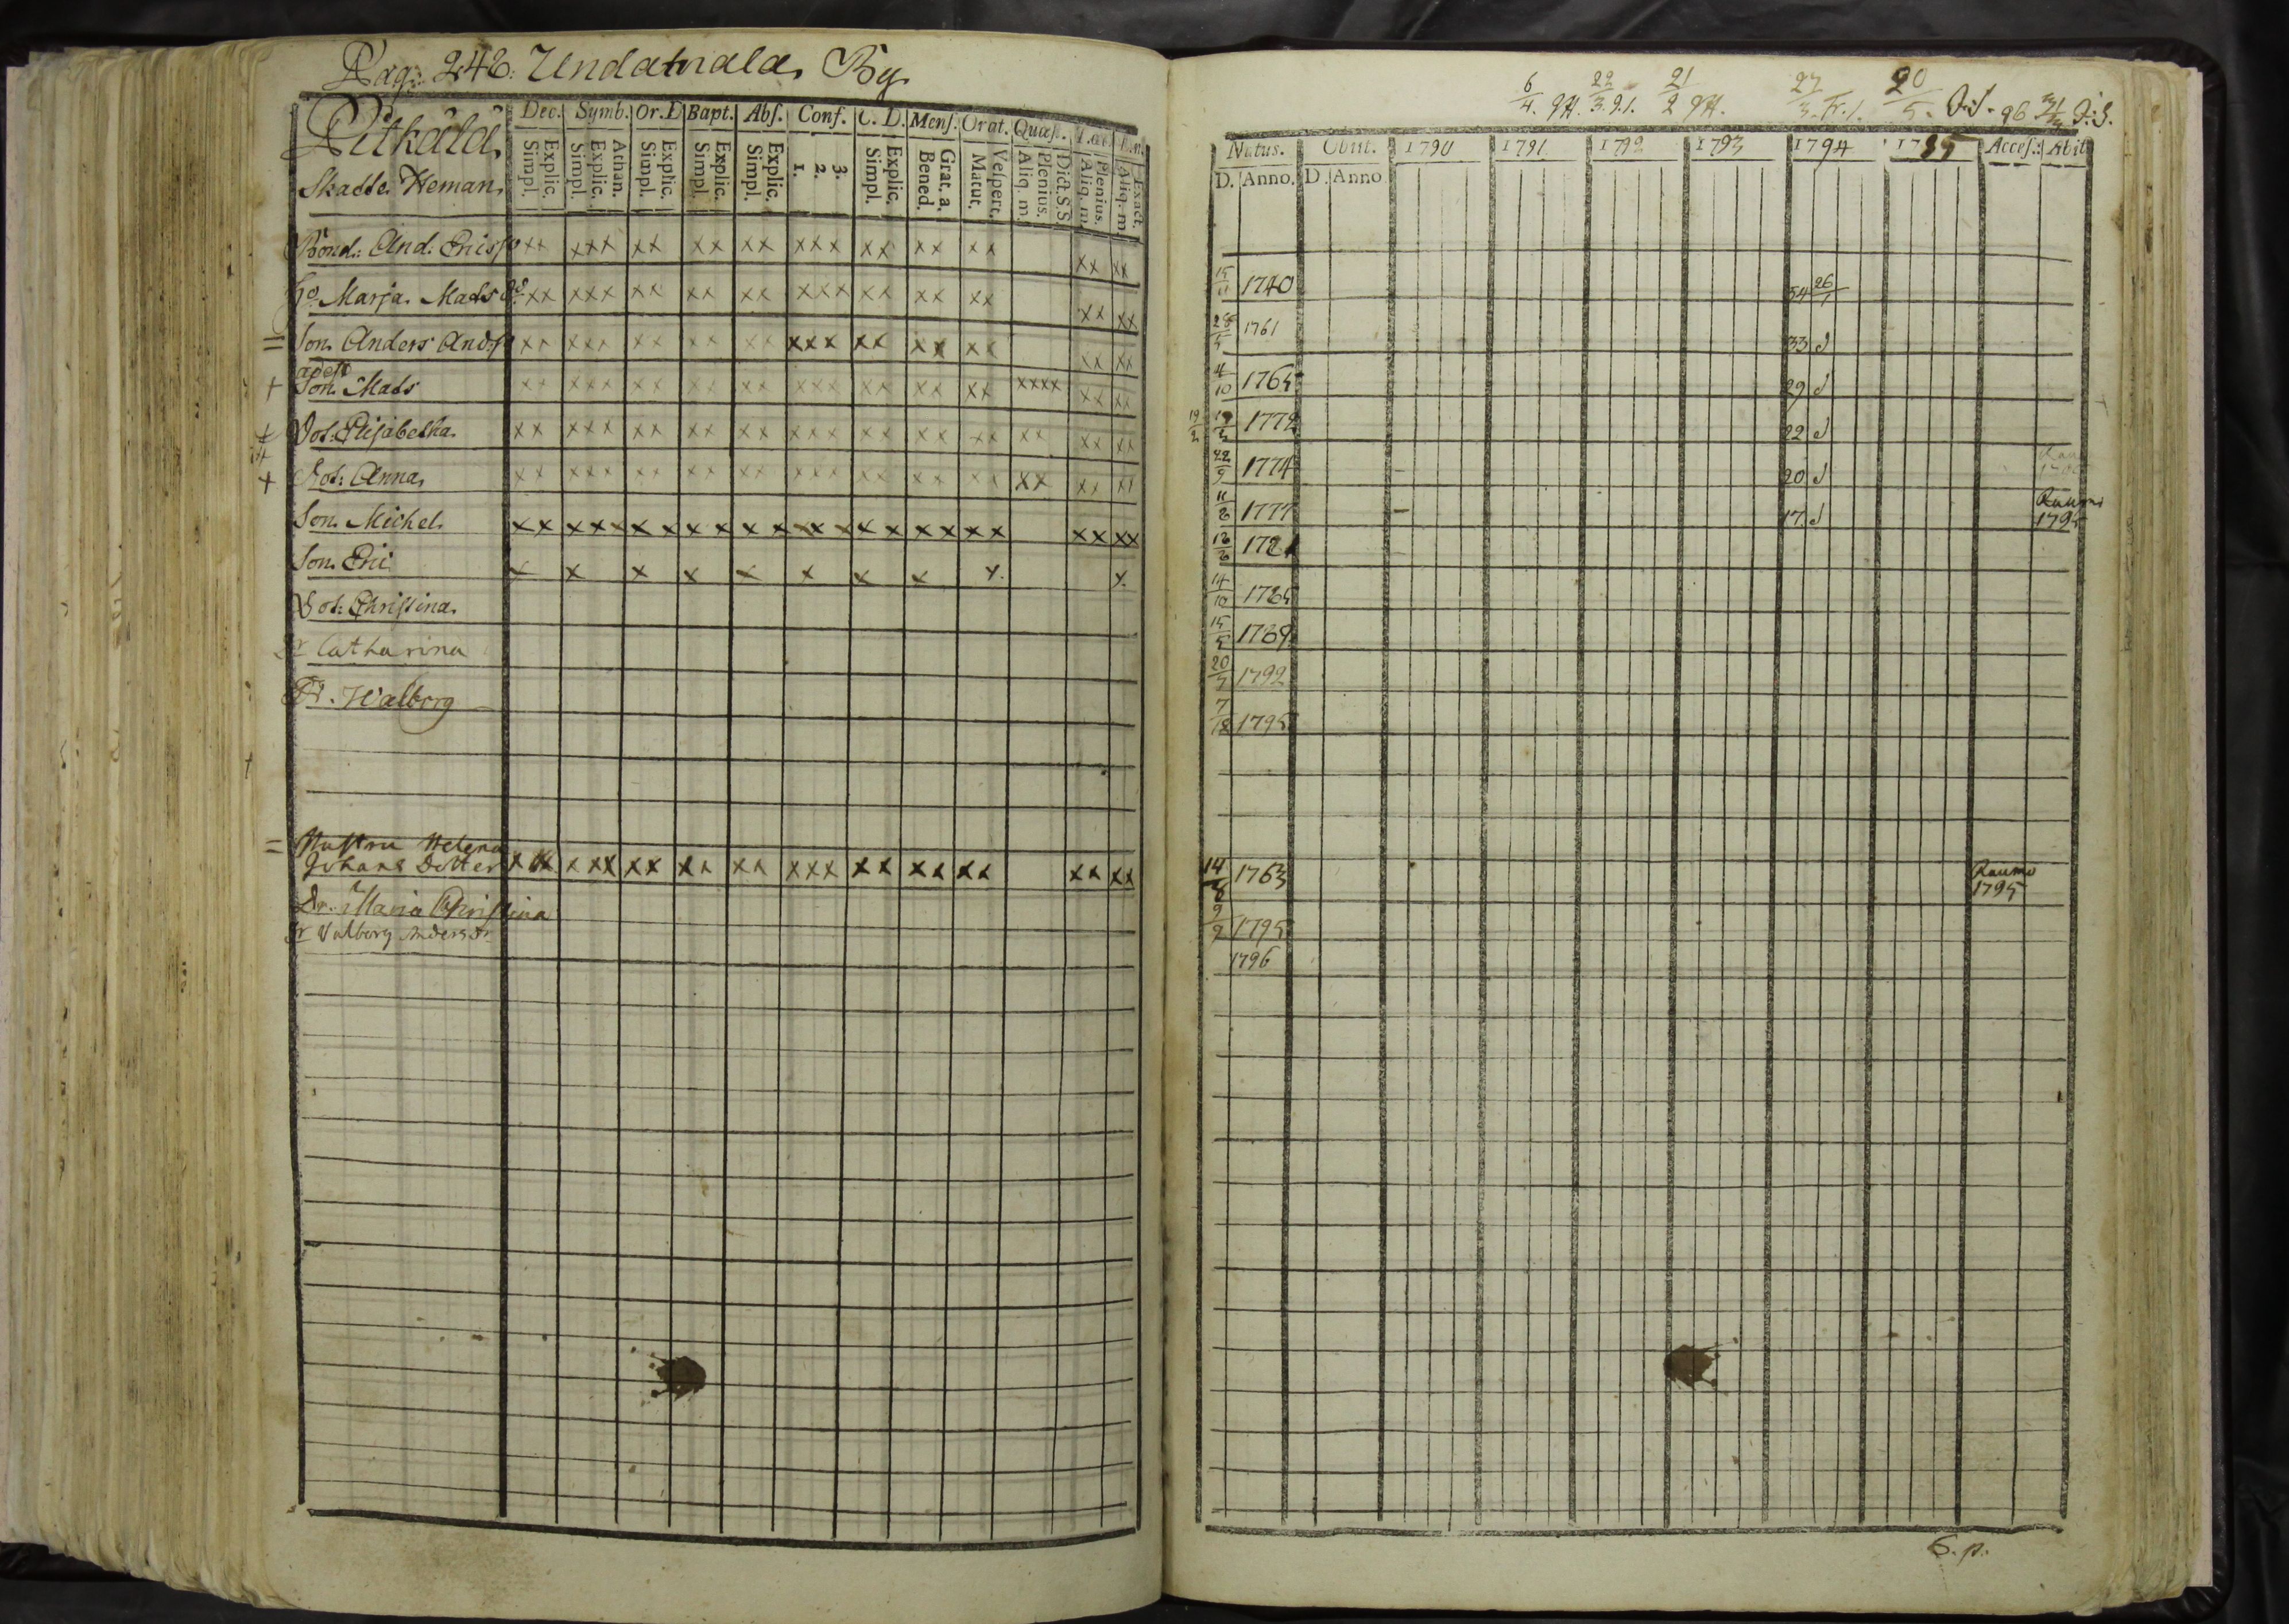 Pag: 248. Undatnala By
Pitkälä
Skatte Heman
Dec. Symb. Or.D Bapt. Abſ. Conf. C. D. Menſ. Orat. Quæſ.
Explic. Simpl. Athan. Explic. Simpl. Explic. Simpl. Explic. Simpl. Explic. Simpl. 3. 2. 1. Explic. Simpl. Grat. a. Bened. Veſpert. Matut. Dict.S.S. Plenius. Aliq. m. Plenius. Aliq. m. Exact. Aliq. m.
Bond: And. Ericsſo xx xxx xx xx xx xxx xx xx xx xx xx
Ho. Marja Mads dr xx xxx xx xx xx xxx xx xx xx xx xx
= Son Anders Andſ xx xxx xx xx xx xxx xx xx xx xx xx
adest
+ Son Mads xx xxx xx xx xx xxx xx xx xx xxxx xx xx
+ Dot: Elisabetha xx xxx xx xx xx xxx xx xx xx xx xx xx
+ Dot: Anna xx xxx xx xx xx xxx xx xx xx xx xx xx
Son Michel xx xxx xx xx xx xxx xx xx xx xx xx
Son Eric x x x x x x x x x. x.
Dot: Christina
Dr Catharina
Dr. Walborg
= Hustru Helena
Johans Dotter xx xxx xx xx xx xxx xx xx xx xx xx
Dr. Maria Christina
Dr Valborg Andersdr
6/4. 94. 22/3. 91. 21/2 94. 27/3. 20/5. 96
Natus. Obiit. 1790 1791 1792 1793 1794 1795 Acceſ: Abit
D. Anno. D. Anno
1740 54 26/1
28/5 1761 33 d
4/10 1765 29 d
19/2 19/2 1772 22 d
22/9 1774 20 d
11/8 1777 17 d Raumo 1795
1781
14/10 1785
15/5 1789
20/7 1792
7/12 1795
14/8 1763 Raumo 1795
9/9 1795
1796
S. p.